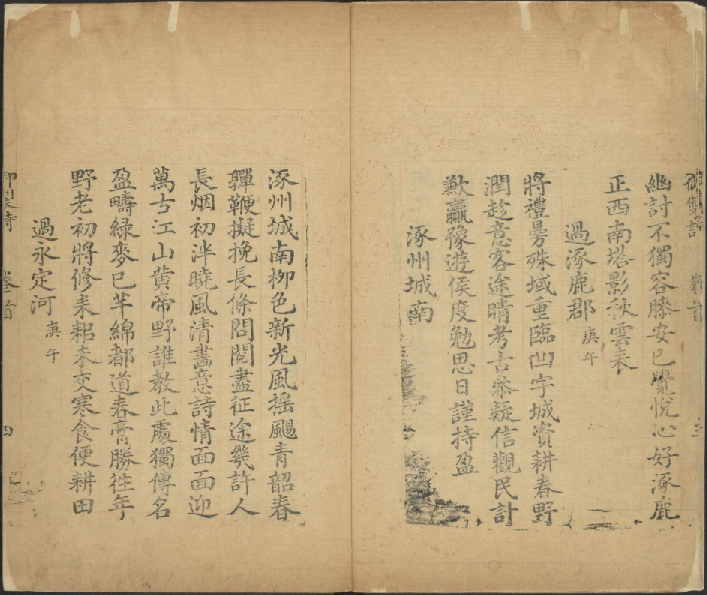 御製詩 卷首 三
幽討不獨容膝安已覺悅心好涿鹿
正西南塔影秋雲表
過涿鹿郡 庚午
將禮昜殊域重臨凹字城資耕春野
潤趁意客途晴考古叅疑信觀民計
歉贏豫遊侯度勉思日謹持盈
涿州城南
涿州城南柳色新光風搖颺青韶春
嚲鞭擬挽長條問閱盡征途幾許人
長烟初泮曉風清畫意詩情面面迎
萬古江山黄帝野誰教此處獨傳名
盈疇綠麥已芊綿都道春膏勝往年
野老初將修耒耜未交寒食便耕田
過永定河 庚午
御製詩 卷首 四